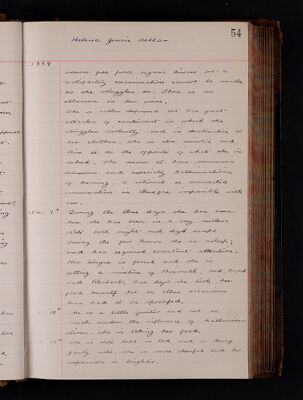 54
Helena Jessie Mellor
1899
seems free from organic disease but a
satisfactory examination cannot be made
as she struggles so. There is no
albumen in her urine.
She is rather depressed but has great
attacks of excitement in which she
struggles violently and is destructive to
her clothes. She is also resistive and
tries to do the opposite of what she is
asked. She seems to have numerous
delusions and especially hallucinations
of hearing. A rational or connected
conversation is therefore impossible with
her.
Nov. 7th During the three days she has been
here she has been in a very restless
state both night and day except
during the few hours she is asleep;
and has required constant attention.
Her tongue is furred and she is
getting a mixture of Bismuth, and
and Rhubarb. One day she took her
food herself but on other occasions
has had to be spoonfed.
10th She is a little quieter and not so
much under the influence of hallucin-
ations. She is taking her food.
She is still kept in bed and is doing
fairly well. She is more cheerful and her
expression is brighter.